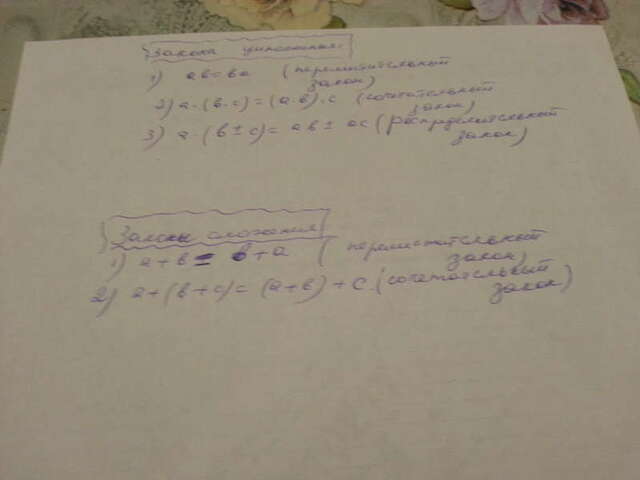 Законы умножения:
1) ab = ba (переместительный
закон)
2) a·(b·c) = (a·b)·c (сочетательный
закон)
3) a·(b ± c) = ab ± ac (распределительный
закон)
Законы сложения
1) a + b = b + a (переместительный
закон)
2) a + (b + c) = (a + b) + c (сочетательный
закон)